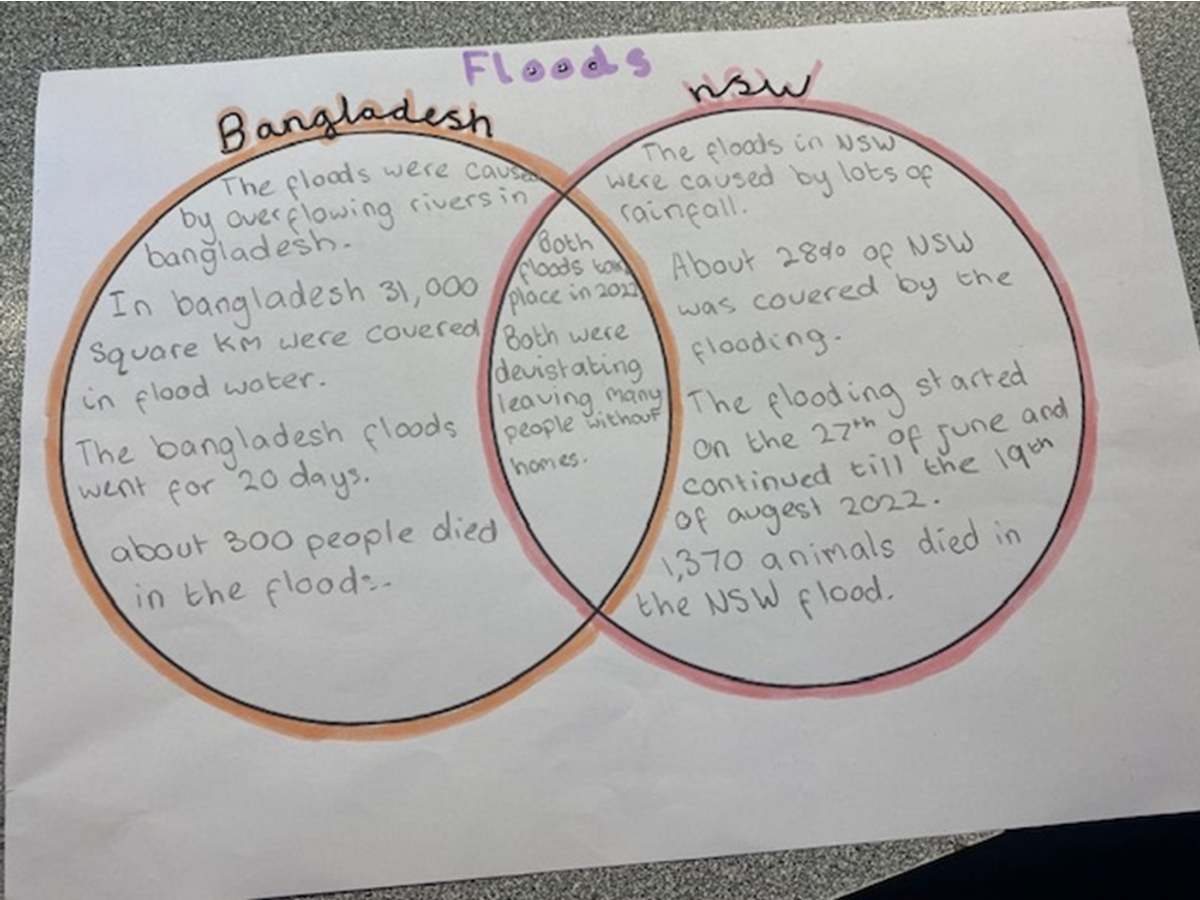 Floods
Bangladesh
The floods were caused
by overflowing rivers in
bangladesh.
In bangladesh 31,000
square km were covered
in flood water.
The bangladesh floods
went for 20 days.
about 300 people died
in the floods.
Both
floods took
place in 2022
Both were
devistating
leaving many
people without
homes.
nsw
The floods in NSW
were caused by lots of
rainfall.
About 28% of NSW
was covered by the
flooding.
The flooding started
on the 27th of june and
continued till the 19th
of augest 2022.
1,370 animals died in
the NSW flood.